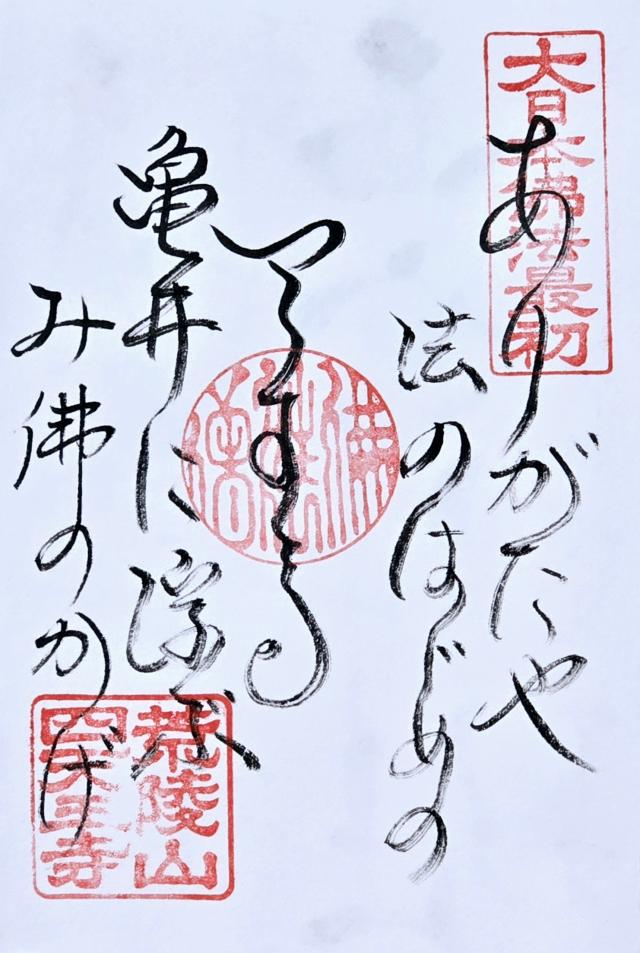 大日本佛法最初
ありがたや
法のはじめの
亀井に浮ぶ
み佛のかげ
荒陵山
四天王寺